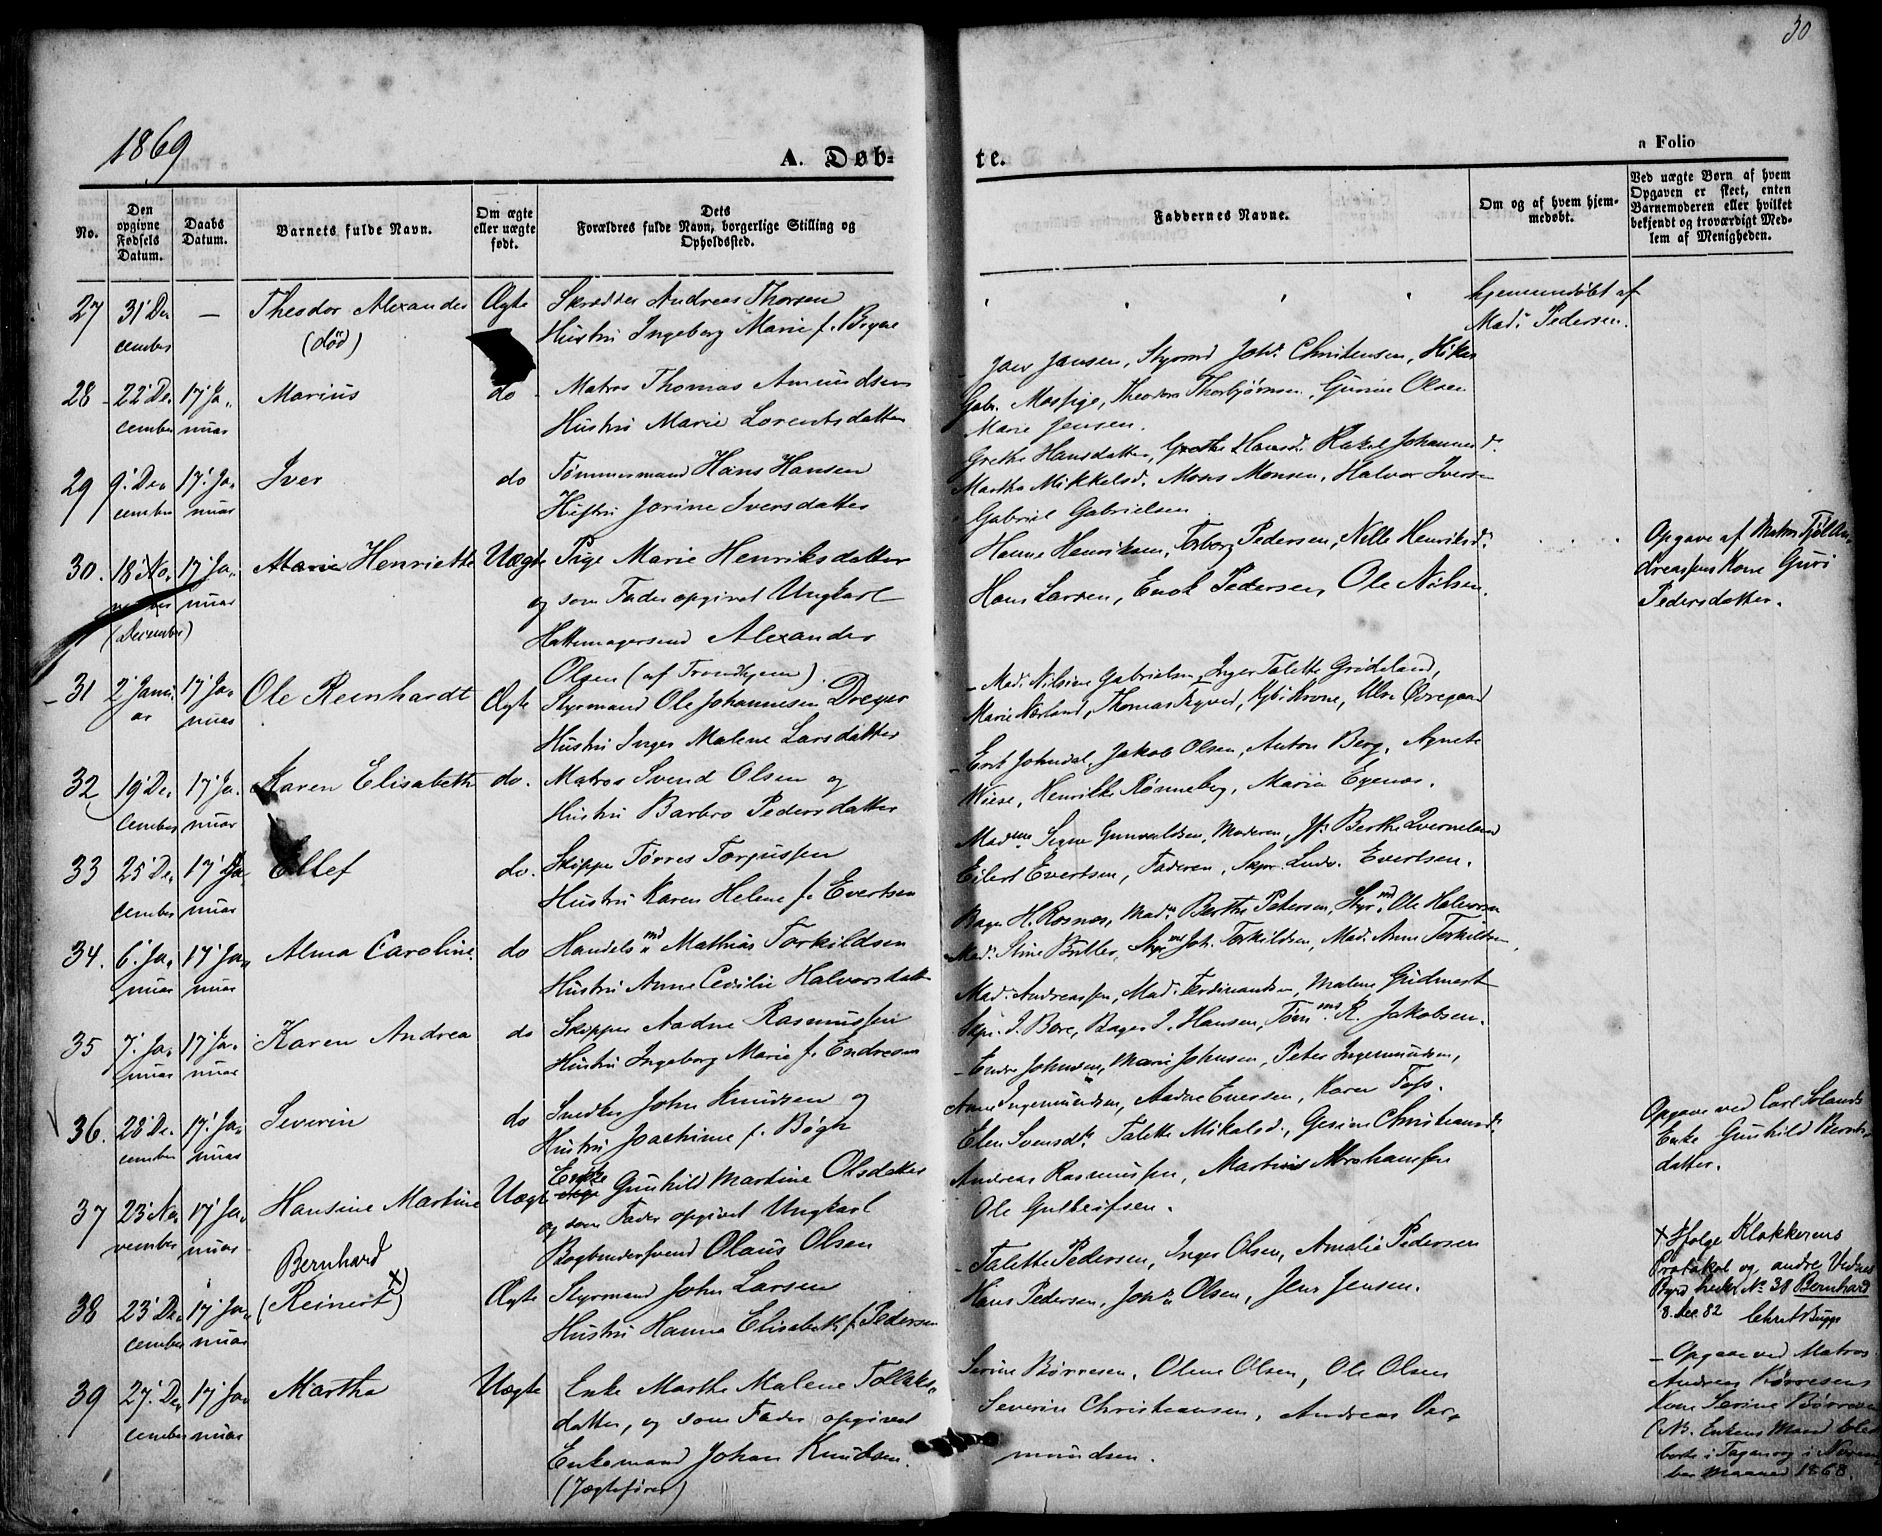 30
1869
A. Døb-
te.
a Folio
No.
Den opgivne Fødsels Datum.
Daabs Datum.
Barnets fulde Navn.
Om ægte eller uægte født.
Dets Forældres fulde Navn, borgerlige Stilling og Opholdssted.
Faddernes Navne.
Om og af hvem hjemmedøbt.
Ved uægte Børn af hvem Opgaven er skeet, enten Barnemoderen eller hvilket bekjendt og troværdigt Medlem af Menigheden.
27 31 De cember — Theodor Alexander (død) Ægte
Skrædder Andreas Thorsen
Hustru Ingeborg Marie f. Bryne
hjemmedøbt af
Mad. Pedersen.
28 22 De cember 17 Ja nuar Marius do
Matros Thomas Amundsen
Hustru Marie Lorentsdatter
Jens Jansen, Styrmd Joh. Christensen,
Theodora Thorbjørnsen, Gurine Olsen
Marie Jensen.
29 9 De cember 17 Ja nuar Iver do
Tømmermand Hans Hansen
Hustru Jorine Iversdatter
Grethe Hansdatter, Grethe Hansd. Rakel Johannesd.
Martha Mikkelsd. Mons Monsen, Halvor Iversen
Gabriel Gabrielsen
30. 18 No vember (December) 17 Ja nuar Marie Henriette Uægte
Pige Marie Henriksdatter
og som Fader opgivet Ungkarl
Hattemagersvend Alexander
Olsen (af Trondhjem).
Hanne Henriksen, Torborg Pedersen, Nille Henriksd.
Hans Larsen, Enok Pedersen, Ole Nilsen.
Opgave af Matros
Kone Guri
Pedersdatter.
31 2 Janu ar 17 Ja nuar Ole Reinhardt Ægte
Styrmand Ole Johannesen Dreyer
Hustru Inger Malene Larsdatter
Mad. Nilsine Gabrielsen, Inger Talette Grødeland,
Marie Nærland, Thomas
32 19 De cember 17 Ja nuar Karen Elisabeth do.
Matros Svend Olsen og
Hustru Barbro Pedersdatter
Jakob Olsen, Anton Berg, Agnete
Wiese, Henrikke Rønneberg, Maria Egenes.
33 25 De cember 17 Ja nuar Ellef do.
Skipper Tørres Torjussen
Hustru Karen Helene f. Evertsen
Madme Signe Gunvaldsen, Moderen, Jfr Berthe Qverneland
Eilert Evertsen, Faderen, Skpr. Ludv. Evertsen.
34. 6 Ja nuar 17 Ja nuar Alma Caroline do
Handelsmd Mathias Torkildsen
Hustru Anne Cecilie Halvorsdatter
Bager H. Rosnes, Mad. Berthe Petersen, Styrmd Ole Halvorsen
Mad. Stine Butler, Styrmd Joh. Torkildsen, Mad. Anne Torkildsen,
35 7. Ja nuar 17 Ja nuar Karen Andrea do
Skipper Aadne Rasmussen
Hustru Ingeborg Marie f. Endresen
Mad. Andreassen, Mad. Ferdinandsen, Malene Gudmert
Skpr. I. Bore, Bager I. Hansen, Tømmd R. Jakobsen.
36. 28 De cember 17 Ja nuar Severin do
Snedker John Knudsen og
Hustru Joachime f. Bøgh
Endre Johnsen, Marie Johnsen, Peter Ingemundsen,
Anne Ingemundsen, Aadne Evensen, Karen Foss.
37 23 No vember 17 Ja nuar Hansine Martine Uægte
Enke Gunhild Martine Olsdatter
og som Fader opgivet Ungkarl
Bogbindersvend Olaus Olsen
Elen Svensdtr. Talette Mikalsd., Gesine Christiansd.
Andreas Rasmussen, Martinus Abrahamsen
Ole Gulbrifsen.
Opgave ved Carl Solands
Enke Gunhild Berntsdatter.
38 23 De cember 17 Ja nuar Bernhard (Reinert x) Ægte
Styrmand John Larsen
Hustru Hanna Elisabeth f. Pedersen
Talette Pedersen, Inger Olsen, Amalie Pedersen
Hans Pedersen, Joh. Olsen, Jens Jensen.
x Ifølge Klokkerens
Protokol og andre Vidnes
Byrd heder No 38 Bernhard
8. dec. 82
39 27. De cember 17 Ja nuar Martha Uægte
Enke Marthe Malene Tollaks-
datter, og som Fader opgivet
Enkemand Johan Knudsen.
(Jægtefører)
Serine Børresen, Olene Olsen, Ole Olsen
Severin Christiansen, Andreas Os-
mundsen.
Opgave ved Matros
Andreas Børresens
Kone Serine Børresen
(NB. Enkens Mand blev
borte i Taganrog i Novem-
ber Maaned 1868.